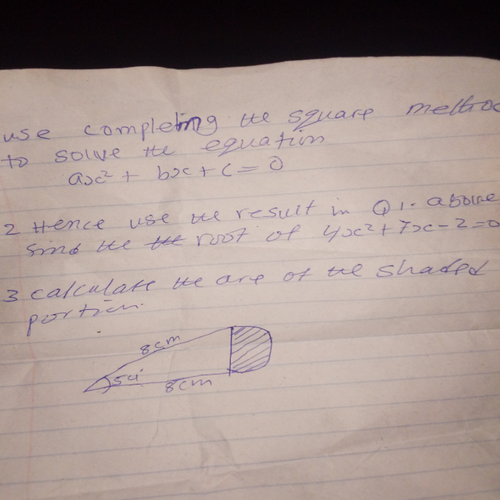 use completing the square method
to solve the equation
ax² + bx + c = 0
2 Hence use the result in Q1. above
the root of 4x² + 7x - 2 = 0
3 calculate the are of the shaded
portion.
8cm
8cm